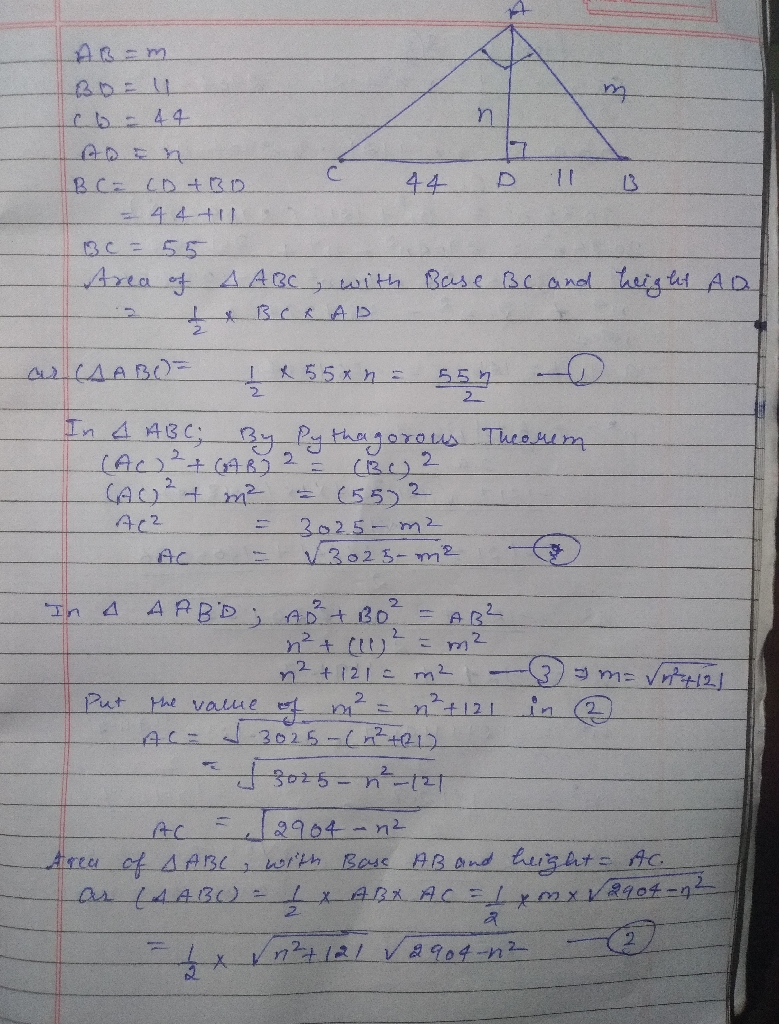 A
AB = m
BD = 11
CD = 44
AD = n
BC = CD + BD
= 44+11
BC = 55
n
m
C
44
D
11
B
Area of Δ ABC, with Base BC and height AD
= 1/2 x BC x AD
ar (ΔABC) = 1/2 x 55 x n = 55n/2 — ①
In Δ ABC; By Pythagorous Theorem
(AC)² + (AB)² = (BC)²
(AC)² + m² = (55)²
AC² = 3025 - m²
AC = √3025-m² — ②
In Δ AABD; AD² + BD² = AB²
n² + (11)² = m²
n² + 121 = m² — ③ ⇒ m = √n²+121
Put the value of m² = n²+121 in ②
AC = √3025-(n²+121)
= √3025-n²-121
AC = √2904-n²
Area of ΔABC, with Base AB and height = AC.
ar (ΔABC) = 1/2 x AB x AC = 1/2 x m x √2904-n²
= 1/2 x √n²+121 √2904-n² — ②